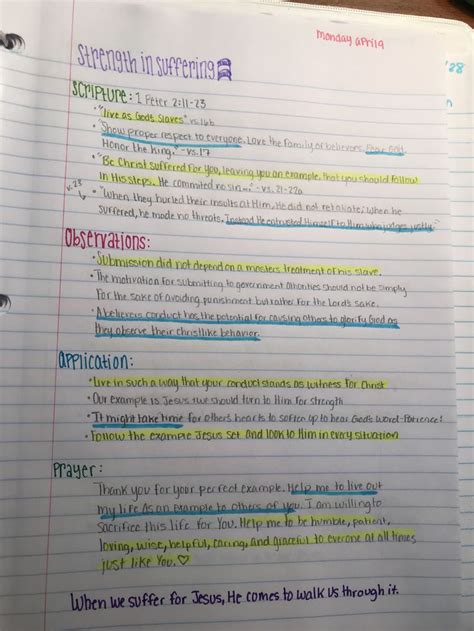 monday april 9
'28
Strength in suffering
SCRIPTURE: 1 Peter 2:11-23
• "live as God's slaves" vs. 16b
• "Show proper respect to everyone. Love the family of believers. Fear God
Honor the king." - vs. 17
• "Be Christ suffered for you, leaving you an example, that you should follow
in His steps. He commited no sin..." - vs. 21-22a
v. 23
• "When they hurled their insults at Him, He did not retaliate; when he
suffered, he made no threats. Instead He entrusted Himself to Him who judges justly."
Observations:
• Submission did not depend on a masters treatment of his slave.
• The motivation for submitting to government athorities should not be simply
for the sake of avoiding punishment but rather for the Lord's sake.
• A believers conduct has the potential for causing others to glorify God as
they observe their christlike behavior.
application:
• live in such a way that your conduct stands as witness for Christ
• Our example is Jesus & we should turn to Him for strength
• It might take time for others hearts to soften up to hear God's Word - Patience!
• Follow the example Jesus set and look to Him in every situation
Prayer:
Thank you for your perfect example. Help me to live out
my life as an example to others of you. I am willing to
sacrifice this life for You. Help me to be humble, patient,
loving, wise, helpful, caring, and graceful to everone at all times
just like You. ♡
When we suffer for Jesus, He comes to walk us through it.